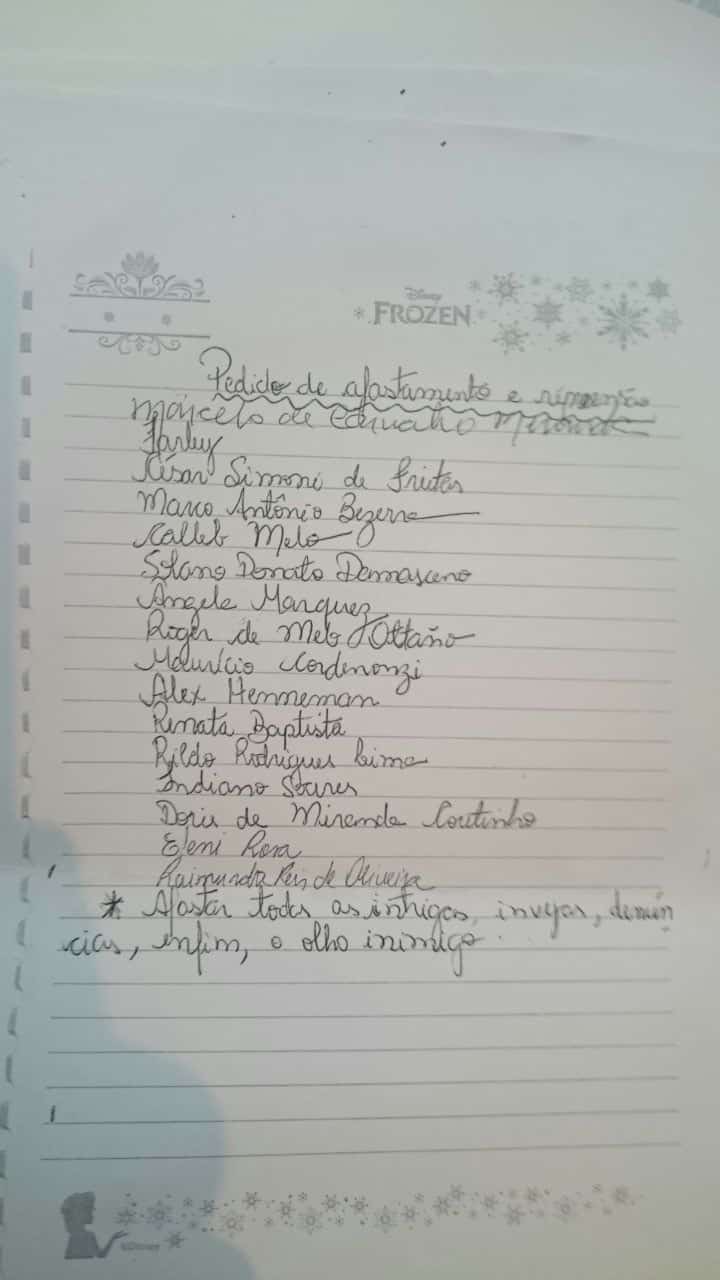 Disney
FROZEN
Pedido de afastamento e repreensão
Marcelo de Carvalho
Farley
César Simoni de Freitas
Marco Antônio Bezerra
Calleb Melo
Solano Donato Damasceno
Angela Marquez
Roger de Melo Ottaño
Maurício Cordenonzi
Alex Henneman
Renata Baptista
Rildo Rodrigues Lima
Indiano Soares
Doris de Miranda Coutinho
Eleni Rosa
Raimunda Reis de Oliveira
* Afastar todas as intrigas, invejas, denún
cias, enfim, o olho inimigo.
©Disney